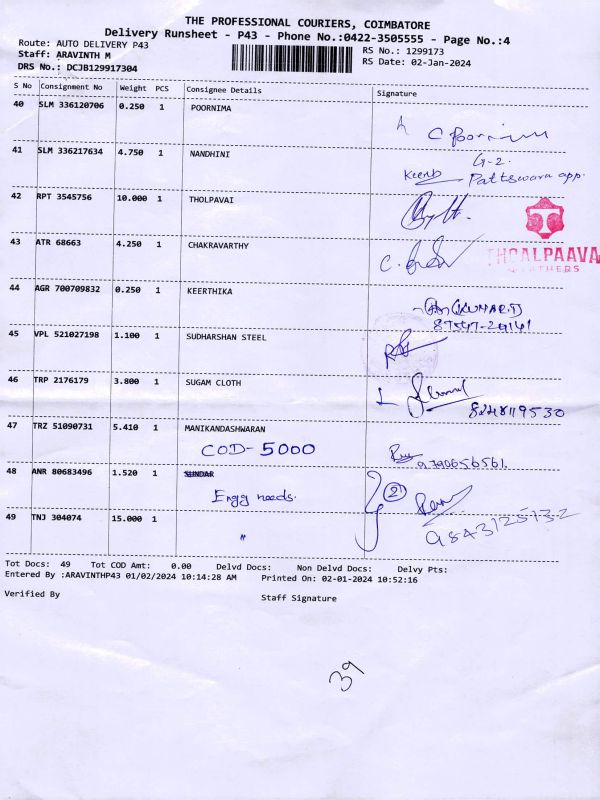 THE PROFESSIONAL COURIERS, COIMBATORE
Delivery Runsheet - P43 - Phone No.:0422-3505555 - Page No.:4
Route: AUTO DELIVERY P43
RS No.: 1299173
Staff: ARAVINTH M
RS Date: 02-Jan-2024
DRS No.: DCJB129917304
S No Consignment No Weight PCS Consignee Details Signature
40 SLM 336120706 0.250 1 POORNIMA
41 SLM 336217634 4.750 1 NANDHINI
G-2.
Pattswara app.
42 RPT 3545756 10.000 1 THOLPAVAI
43 ATR 68663 4.250 1 CHAKRAVARTHY
THOALPAAVA
LEATHERS
44 AGR 700709832 0.250 1 KEERTHIKA
KUMAR.D
45 VPL 521027198 1.100 1 SUDHARSHAN STEEL
46 TRP 2176179 3.800 1 SUGAM CLOTH
8248119530
47 TRZ 51090731 5.410 1 MANIKANDASHWARAN
COD-5000
9790656561.
48 ANR 80683496 1.520 1 SUNDAR
Engg needs.
2
49 TNJ 304074 15.000 1 "
9843125132
Tot Docs: 49 Tot COD Amt: 0.00 Delvd Docs: Non Delvd Docs: Delvy Pts:
Entered By :ARAVINTHP43 01/02/2024 10:14:28 AM Printed On: 02-01-2024 10:52:16
Verified By Staff Signature
39